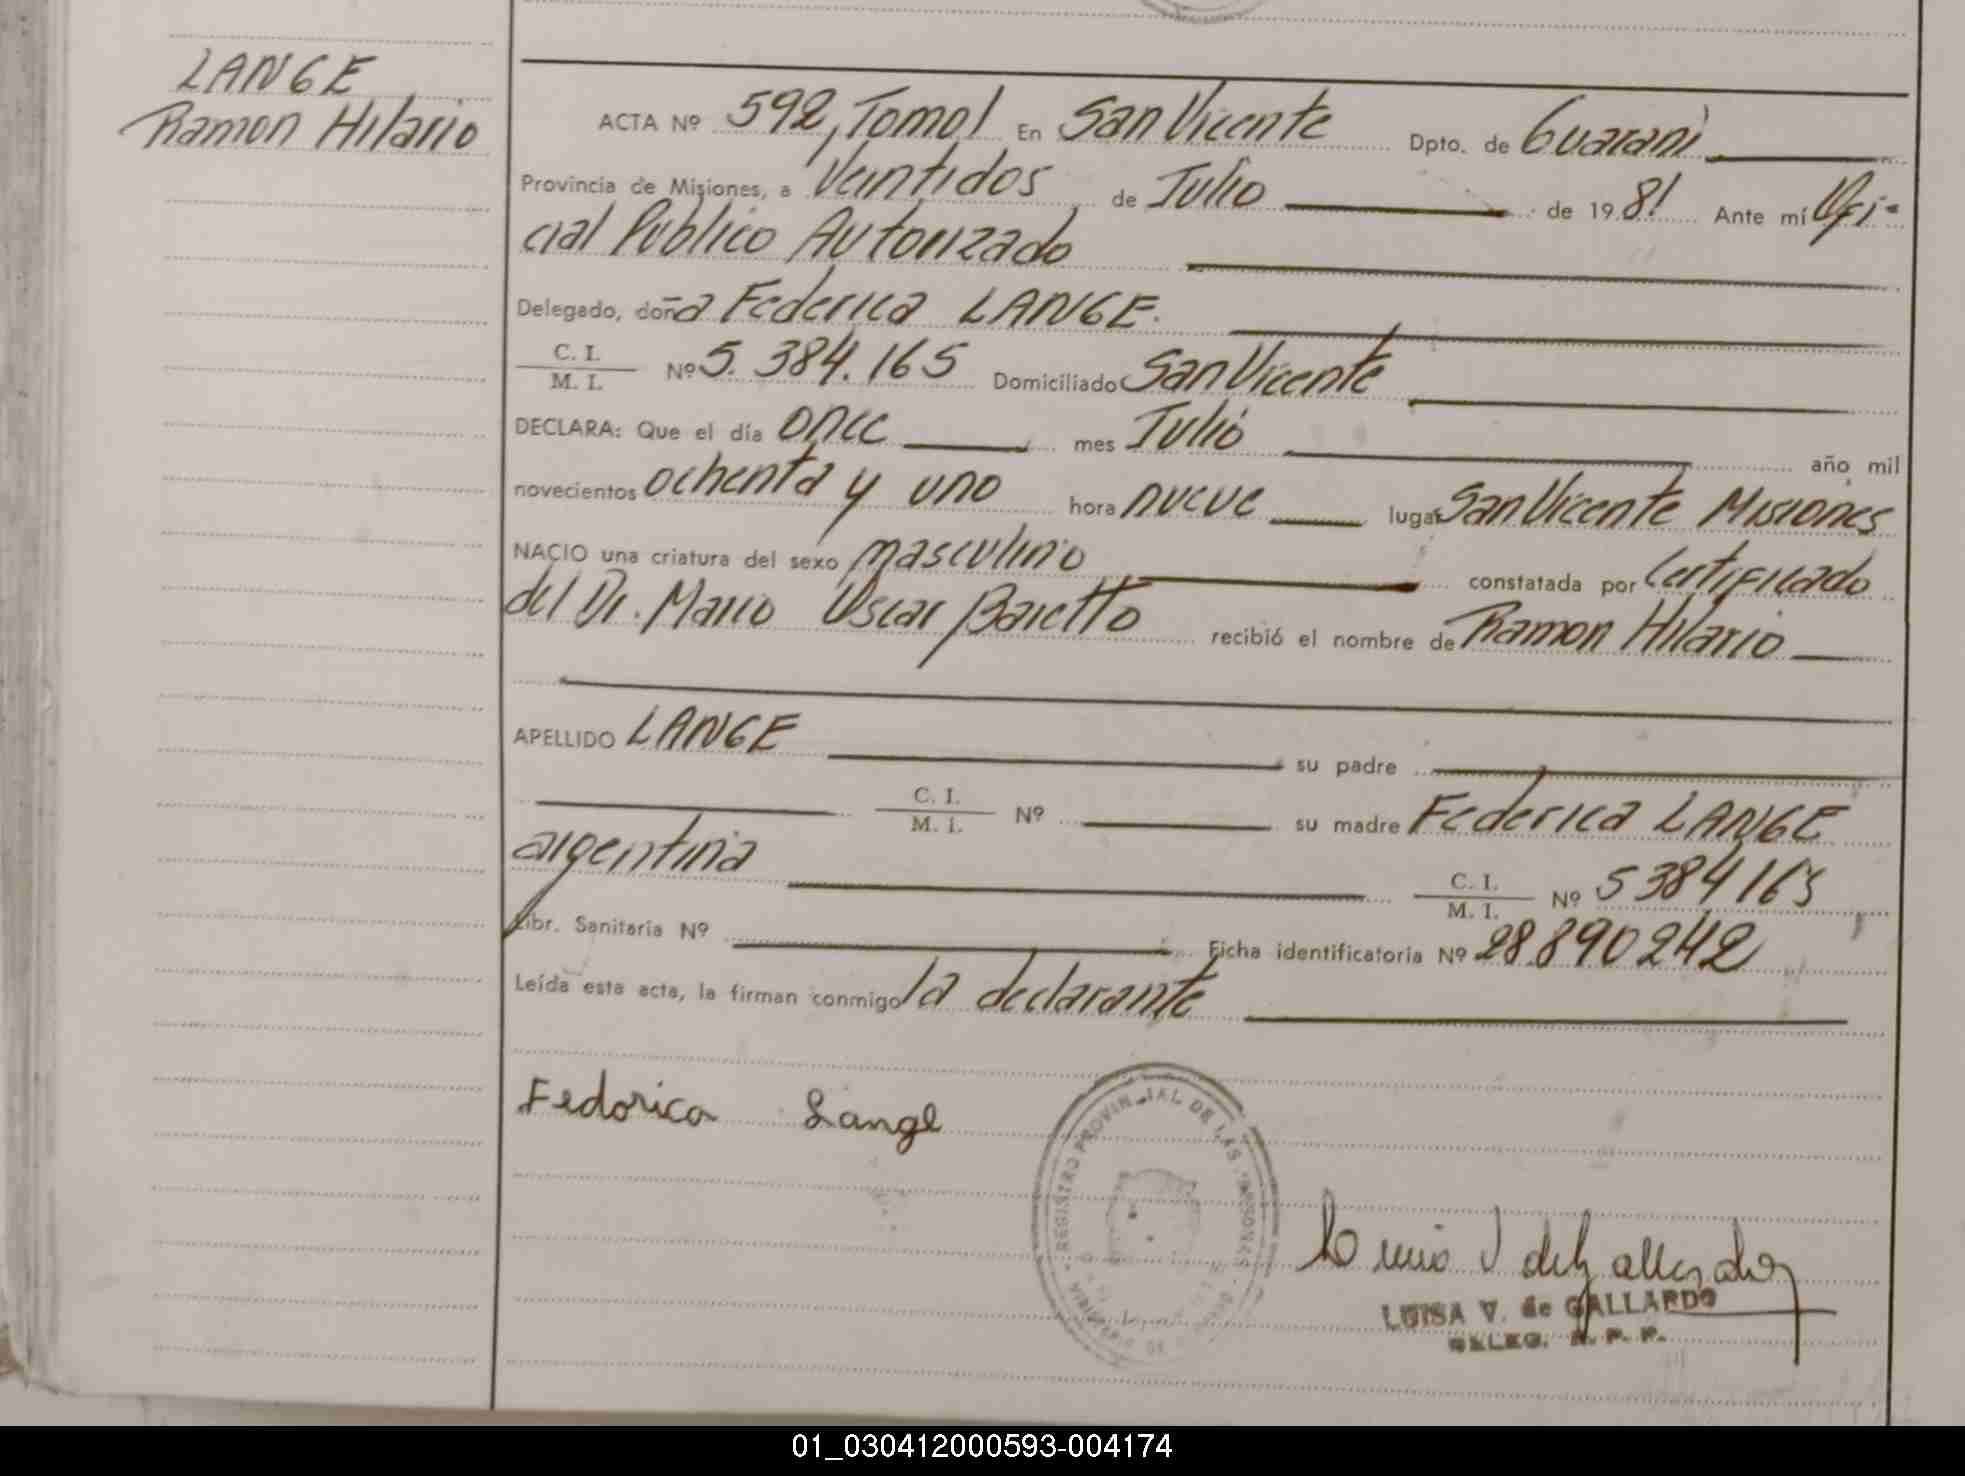 LANGE
Ramon Hilario
ACTA Nº 592, Tomo I En San Vicente Dpto. de Guarani
Provincia de Misiones, a Veintidos de Julio de 1981 Ante mí Ofi-
cial Publico Autorizado
Delegado, doña Federica LANGE.
C. I.
M. I. Nº 5.384.165 Domiciliado San Vicente
DECLARA: Que el día once mes Julio año mil
novecientos ochenta y uno hora nueve lugar San Vicente Misiones
NACIO una criatura del sexo masculino constatada por Certificado
del Dr. Mario Oscar Baretto recibió el nombre de Ramon Hilario
APELLIDO LANGE su padre
C. I.
M. I. Nº su madre Federica LANGE
argentina C. I.
M. I. Nº 5384165
Libr. Sanitaria Nº Ficha identificatoria Nº 28890242
Leída esta acta, la firman conmigo la declarante
Federica Lange
REGISTRO PROVINCIAL DE LAS PERSONAS
MINISTERIO DE
LUISA V. de GALLARDO
DELEG. R. P. P.
01_030412000593-004174